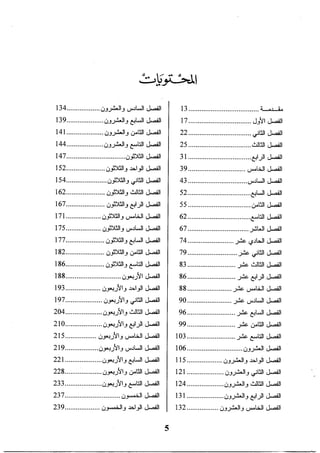 المحتويات
مقدمة ........ 13
الفصل الأول ........ 17
الفصل الثاني ........ 22
الفصل الثالث ........ 25
الفصل الرابع ........ 31
الفصل الخامس ........ 39
الفصل السادس ........ 43
الفصل السابع ........ 52
الفصل الثامن ........ 55
الفصل التاسع ........ 62
الفصل العاشر ........ 67
الفصل الحادي عشر ........ 74
الفصل الثاني عشر ........ 79
الفصل الثالث عشر ........ 83
الفصل الرابع عشر ........ 86
الفصل الخامس عشر ........ 88
الفصل السادس عشر ........ 90
الفصل السابع عشر ........ 96
الفصل الثامن عشر ........ 99
الفصل التاسع عشر ........ 103
الفصل العشرون ........ 106
الفصل الواحد والعشرون ........ 115
الفصل الثاني والعشرون ........ 121
الفصل الثالث والعشرون ........ 124
الفصل الرابع والعشرون ........ 131
الفصل الخامس والعشرون ........ 132
الفصل السادس والعشرون ........ 134
الفصل السابع والعشرون ........ 139
الفصل الثامن والعشرون ........ 141
الفصل التاسع والعشرون ........ 144
الفصل الثلاثون ........ 147
الفصل الواحد والثلاثون ........ 152
الفصل الثاني والثلاثون ........ 154
الفصل الثالث والثلاثون ........ 162
الفصل الرابع والثلاثون ........ 167
الفصل الخامس والثلاثون ........ 171
الفصل السادس والثلاثون ........ 175
الفصل السابع والثلاثون ........ 177
الفصل الثامن والثلاثون ........ 182
الفصل التاسع والثلاثون ........ 186
الفصل الأربعون ........ 188
الفصل الواحد والأربعون ........ 193
الفصل الثاني والأربعون ........ 197
الفصل الثالث والأربعون ........ 204
الفصل الرابع والأربعون ........ 210
الفصل الخامس والأربعون ........ 215
الفصل السادس والأربعون ........ 219
الفصل السابع والأربعون ........ 221
الفصل الثامن والأربعون ........ 228
الفصل التاسع والأربعون ........ 233
الفصل الخمسون ........ 237
الفصل الواحد والخمسون ........ 239
5